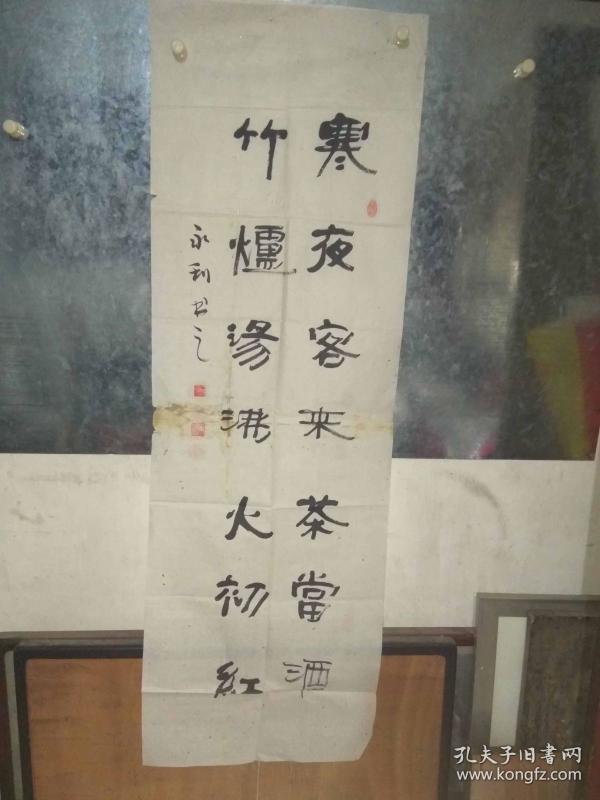 寒夜客来茶當酒
竹爐湯沸火初紅
永利书之
孔夫子旧书网
www.kongfz.com